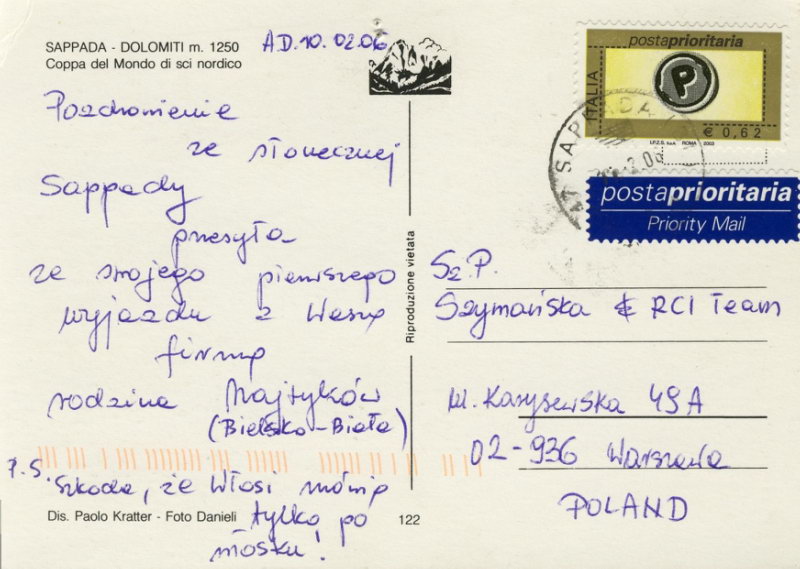 SAPPADA - DOLOMITI m. 1250
Coppa del Mondo di sci nordico
A.D. 10.02.06
Pozdrowienie
ze słonecznej
Sappady
przesyła
ze swojego pierwszego
wyjazdu z Waszą
firmą
rodzina Majtyków
(Bielsko-Biała)
P.S. Szkoda, że Włosi mówią
tylko po
włosku!
Dis. Paolo Kratter - Foto Danieli
122
Riproduzione vietata
postaprioritaria
ITALIA
P
€ 0,62
I.P.Z.S. S.p.A. ROMA 2003
SAPPADA
postaprioritaria
Priority Mail
Sz. P.
Szymańska & RCI Team
ul. Karyszewska 49A
02-936 Warszawa
POLAND